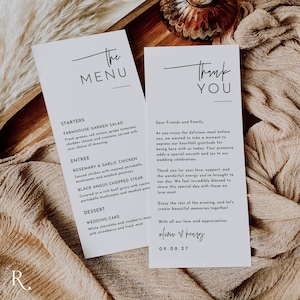 the
MENU
STARTERS
FARMHOUSE GARDEN SALAD
Fresh greens, red onions, grape tomatoes,
your choice of dressing
ENTREE
ROSEMARY & GARLIC CHICKEN
BLACK ANGUS CHOPPED STEAK
Covered in a rich beef gravy with
portabella mushrooms and
DESSERT
WEDDING CAKE
White chocolate and raspberry
with strawberries and fresh mint
thank
YOU
Dear Friends and Family,
As you enjoy the delicious meal before
you, we wanted to take a moment to
express our heartfelt gratitude for
being here with us today. Your presence
adds a special warmth and joy to our
wedding celebration.
Thank you for your love, support, and
the wonderful energy you've brought to
our day. We feel incredibly blessed to
share this special day with those we
love most.
Enjoy the rest of the evening, and let's
create beautiful memories together!
With all our love and appreciation,
09.08.27
R